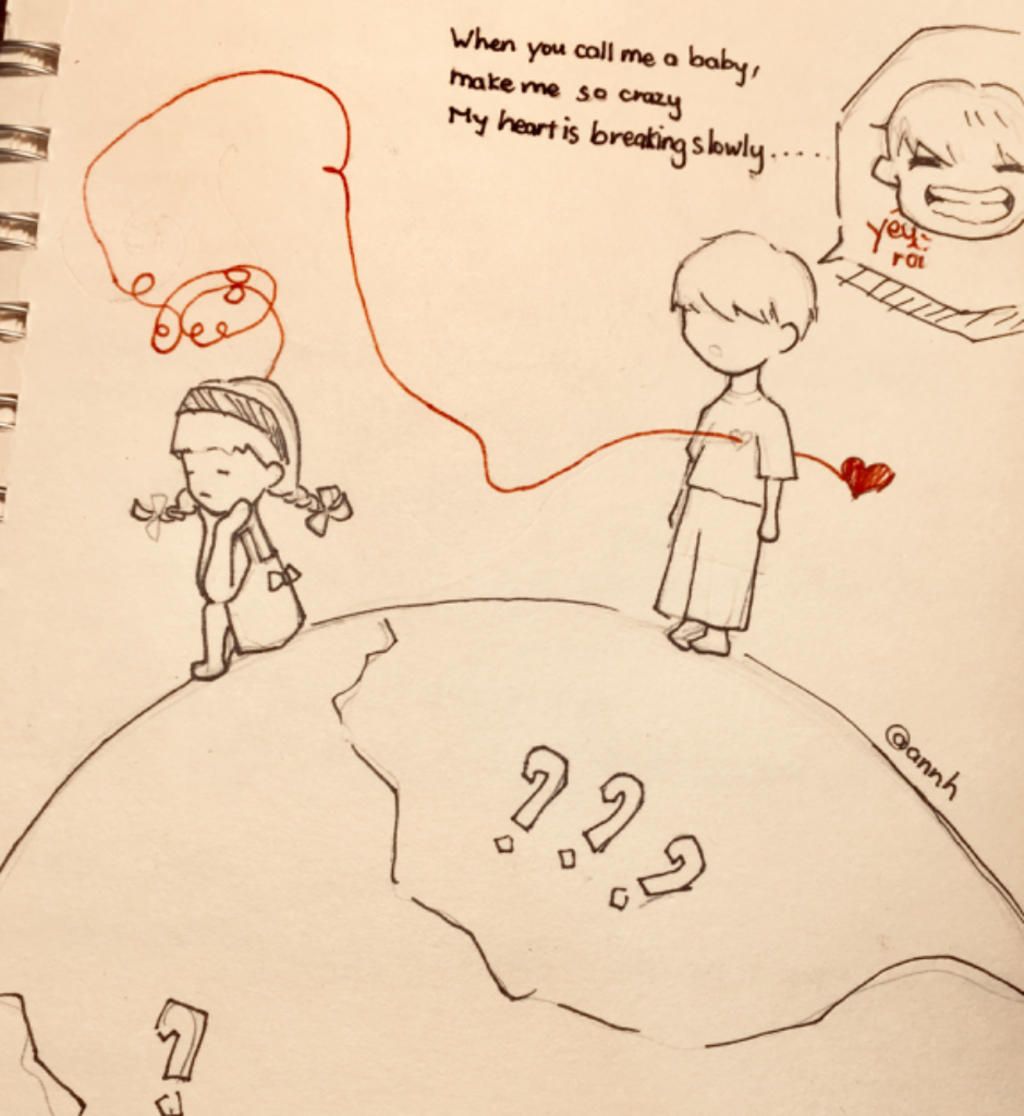 When you call me a baby,
make me so crazy
My heart is breaking slowly.....
yêu
rồi
@annh
? ? ?
?